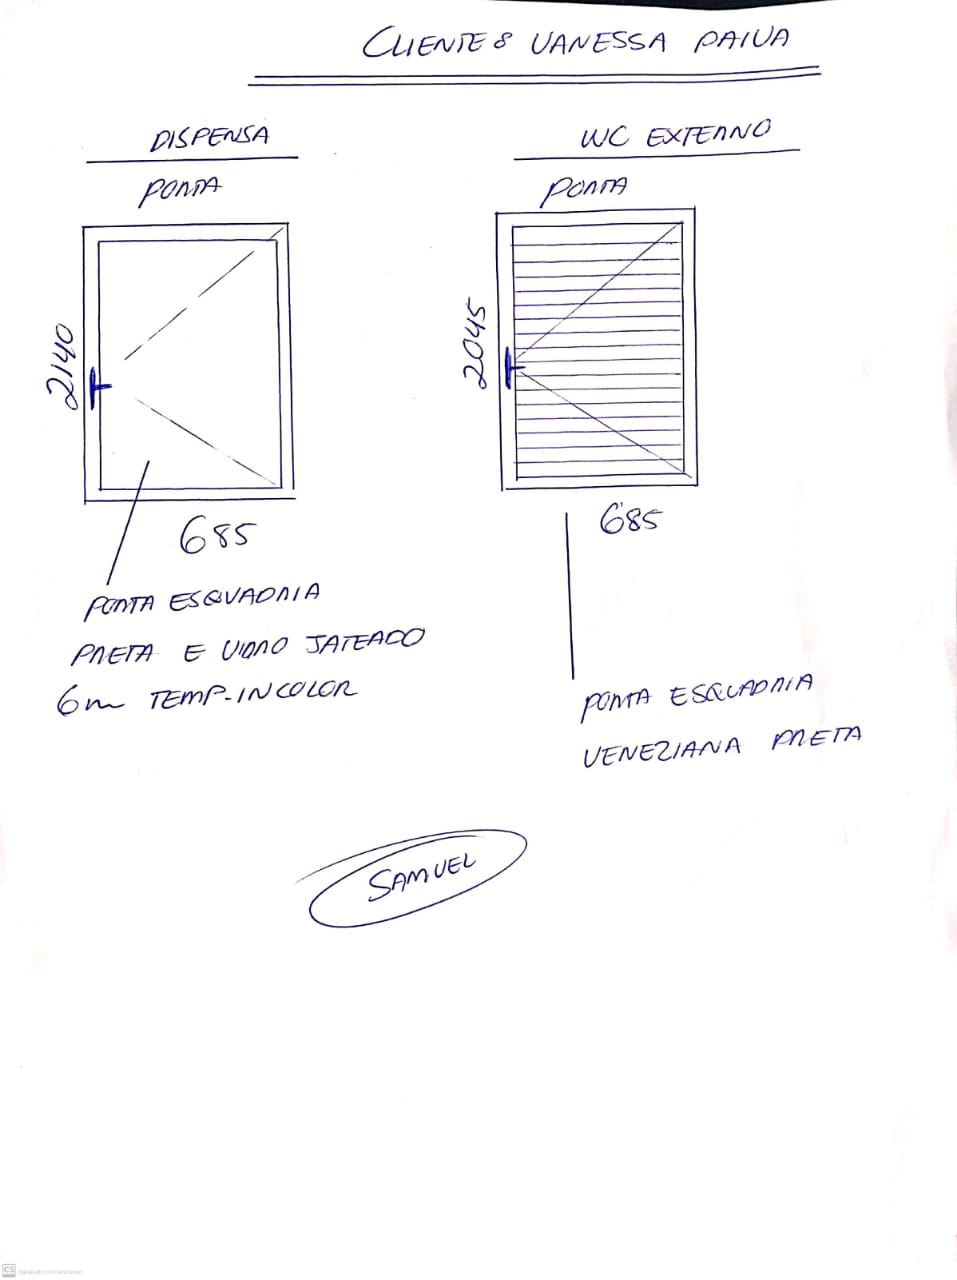 CLIENTE: VANESSA PAIVA
DISPENSA
PORTA
2140
685
PORTA ESQUADRIA
PRETA E VIDRO JATEADO
6m TEMP-INCOLOR
WC EXTERNO
PORTA
2045
685
PORTA ESQUADRIA
VENEZIANA PRETA
SAMUEL
CS